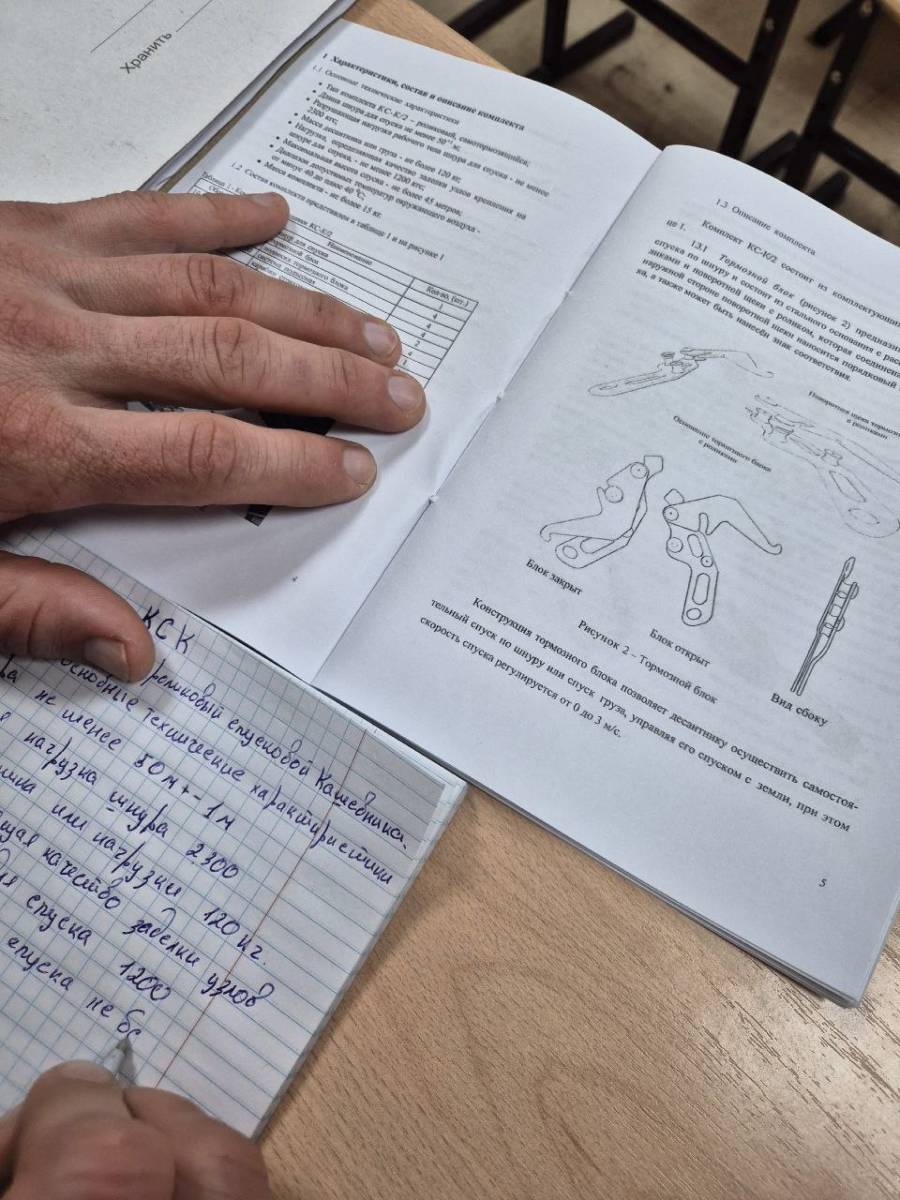 Хранить
1 Характеристики, состав и описание комплекта
1.1 Основные технические характеристики
• Тип комплекта КС-К/2 – роликовый, самотормозящийся;
• Длина шнура для спуска не менее 50 м;
• Разрушающая нагрузка рабочего тела шнура для спуска - не менее
2300 кгс;
• Масса десантника или груза - не более 120 кг;
• Нагрузка, определяющая качество заделки узлов крепления на
шнуре для спуска, - не менее 1200 кгс;
• Максимальная высота спуска - не более 45 метров;
• Диапазон допустимых температур окружающего воздуха -
от минус 40 до плюс 40 °С;
• Масса комплекта - не более 15 кг.
1.2 Состав комплекта представлен в таблице 1 и на рисунке 1
Таблица 1 -
КС-К/2
Наименование
Кол-во, (шт.)
для спуска
1
блок
4
подвеска тормозного блока
4
4
2
4
1
4
1.3 Описание комплекта
Комплект КС-К/2 состоит из
це 1.
1.3.1 Тормозной блок (рисунок 2)
спуска по шнуру и состоит из стального основания с
и поворотной щеки с роликом, которая
наружной стороне поворотной щеки наносится порядковый
ка, а также может быть нанесён знак соответствия.
Основание тормозного блока
с роликами
Поворотная щека
с роликами
Блок закрыт
Блок открыт
Вид сбоку
Рисунок 2 – Тормозной блок
Конструкция тормозного блока позволяет десантнику осуществить самостоя-
тельный спуск по шнуру или спуск груза, управляя его спуском с земли, при этом
скорость спуска регулируется от 0 до 3 м/с.
5
КСК
спусковой
технические
не менее 50м +- 1м
нагрузка шнура 2300
или нагрузки 120 кг.
качество заделки узлов
спуска 1200
спуска не бо